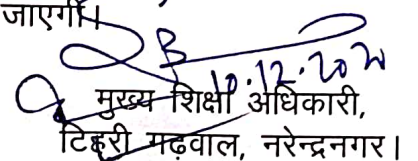 जाएगी।
10.12.20
मुख्य शिक्षा अधिकारी,
टिहरी गढ़वाल, नरेन्द्रनगर।